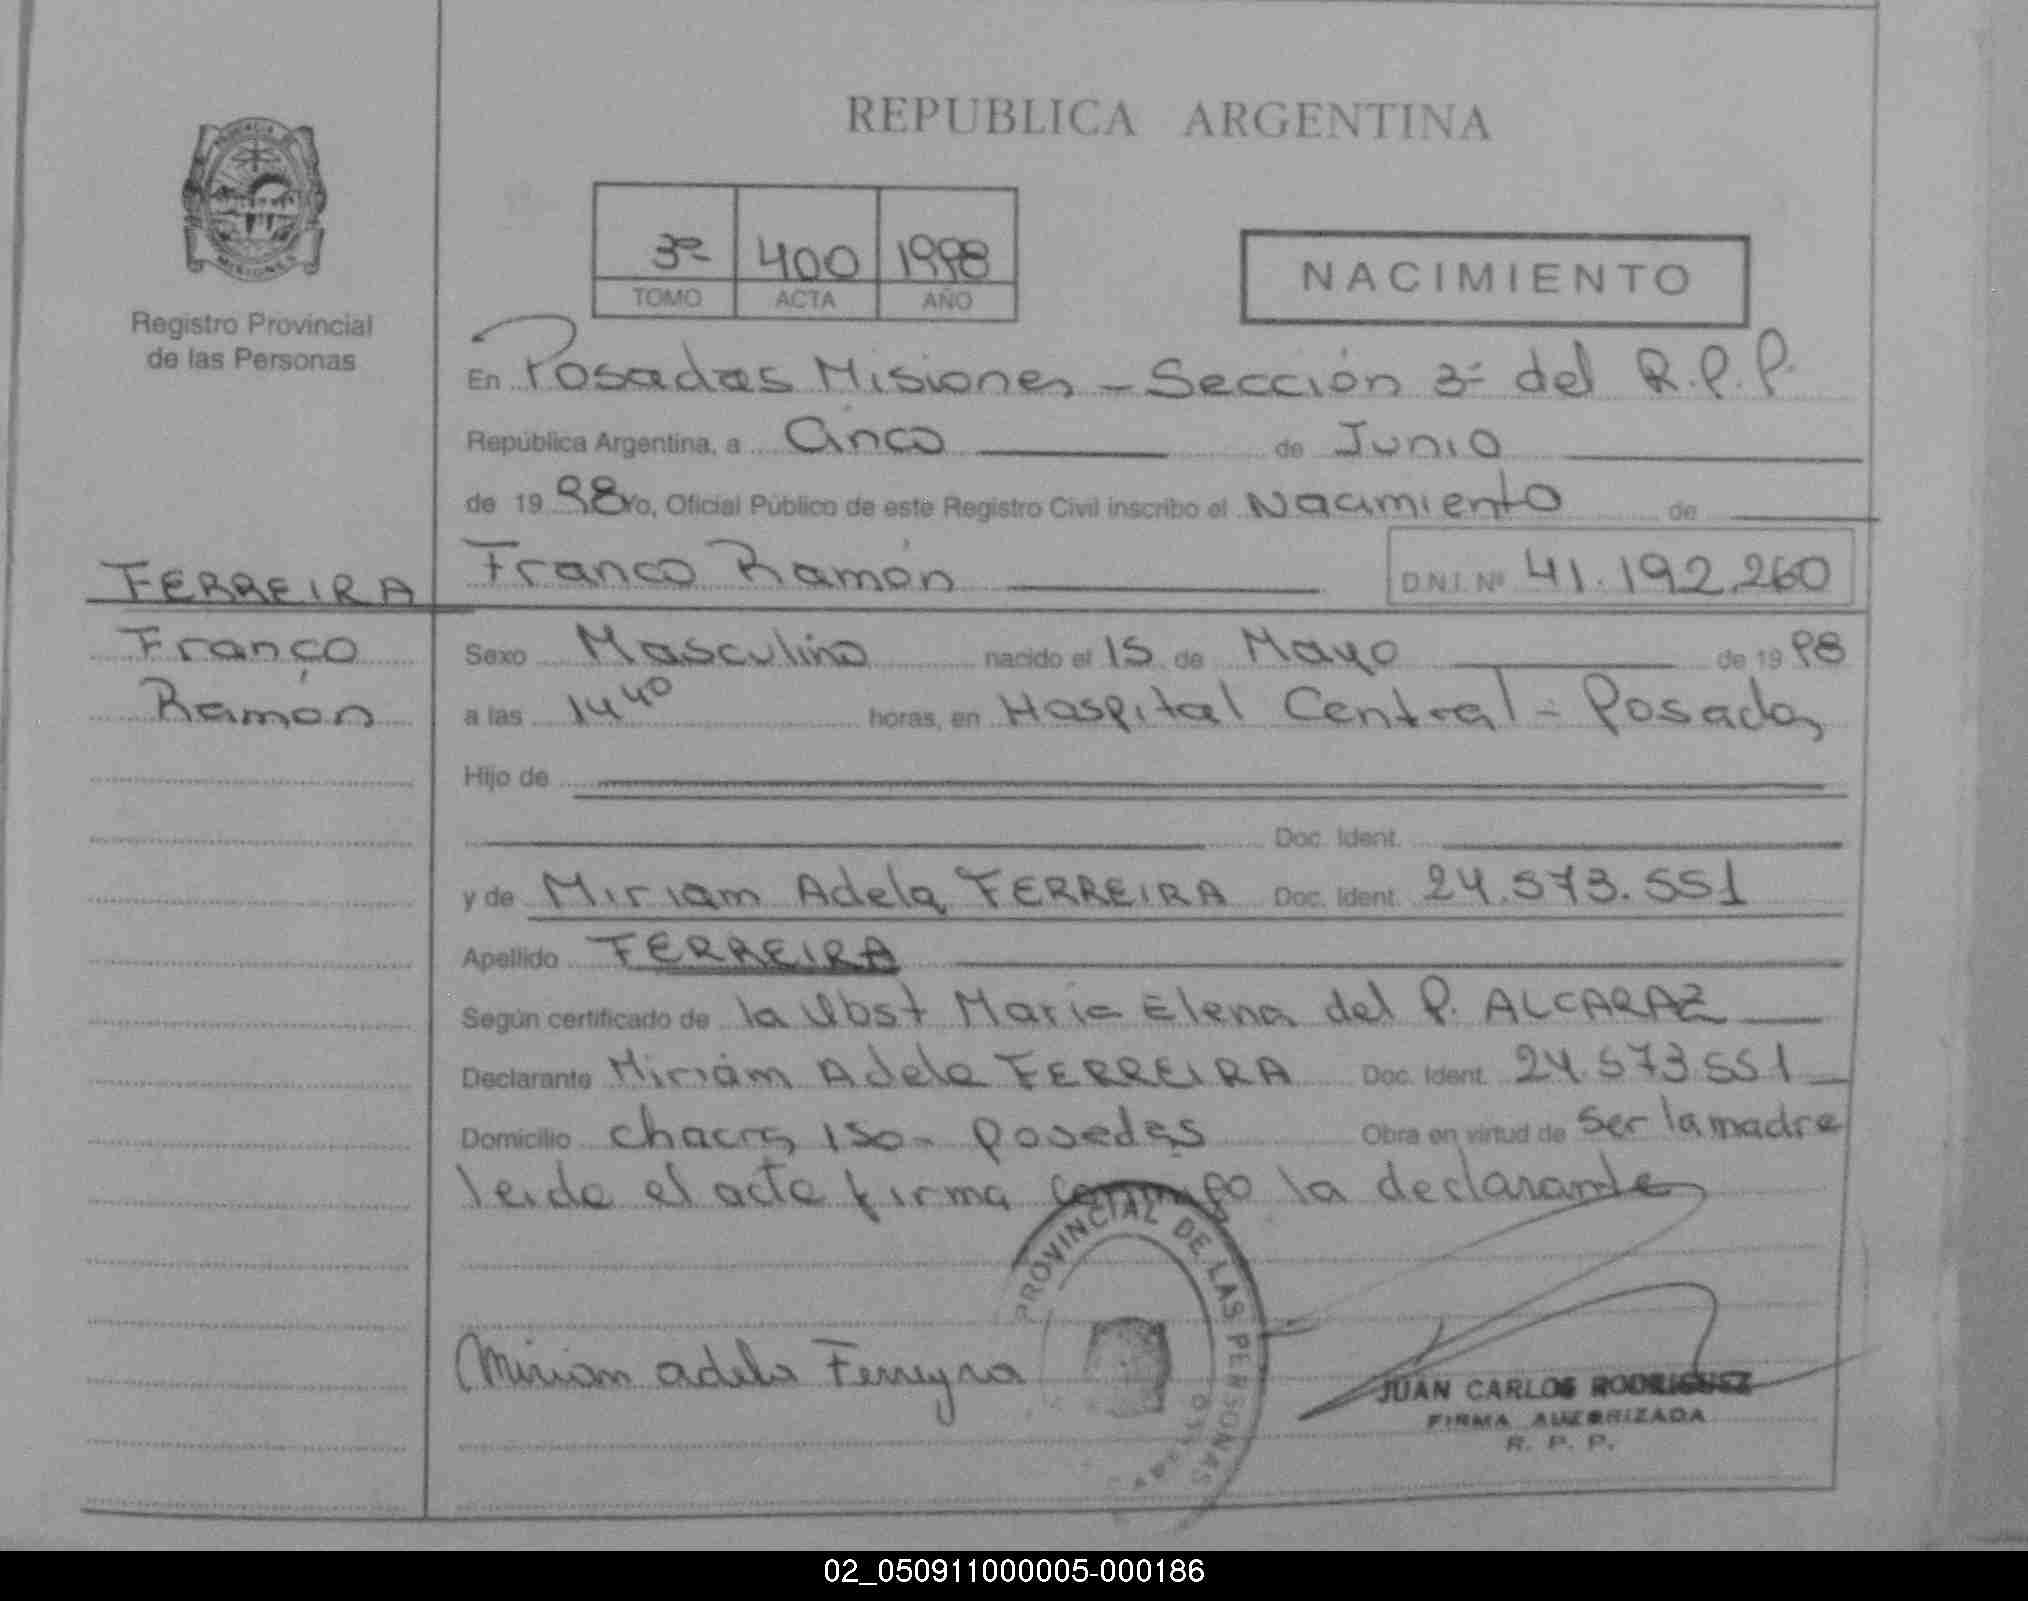 REPUBLICA ARGENTINA
PROVINCIA DE
MISIONES
Registro Provincial
de las Personas
3ª 400 1998
TOMO ACTA AÑO
NACIMIENTO
En Posadas Misiones - Sección 3ª del R.P.P.
República Argentina, a Cinco de Junio
de 19 98 Yo, Oficial Público de este Registro Civil inscribo el Nacimiento de
FERREIRA
Franco Ramón D.N.I. Nº 41.192.260
Franco
Ramón
Sexo Masculino nacido el 15 de Mayo de 19 98
a las 14 40 horas, en Hospital Central - Posadas
Hijo de
Doc. Ident.
y de Miriam Adela FERREIRA Doc. Ident. 24.573.551
Apellido FERREIRA
Según certificado de la Obst Maria Elena del P. ALCARAZ
Declarante Miriám Adela FERREIRA Doc. Ident. 24.573.551
Domicilio chacra 150 - Posadas Obra en virtud de Ser la madre
leida el acta firma conmigo la declarante
PROVINCIAL DE LAS PERSONAS
Miriam adela Ferreyra
JUAN CARLOS RODRIGUEZ
FIRMA AUTORIZADA
R. P. P.
02_050911000005-000186